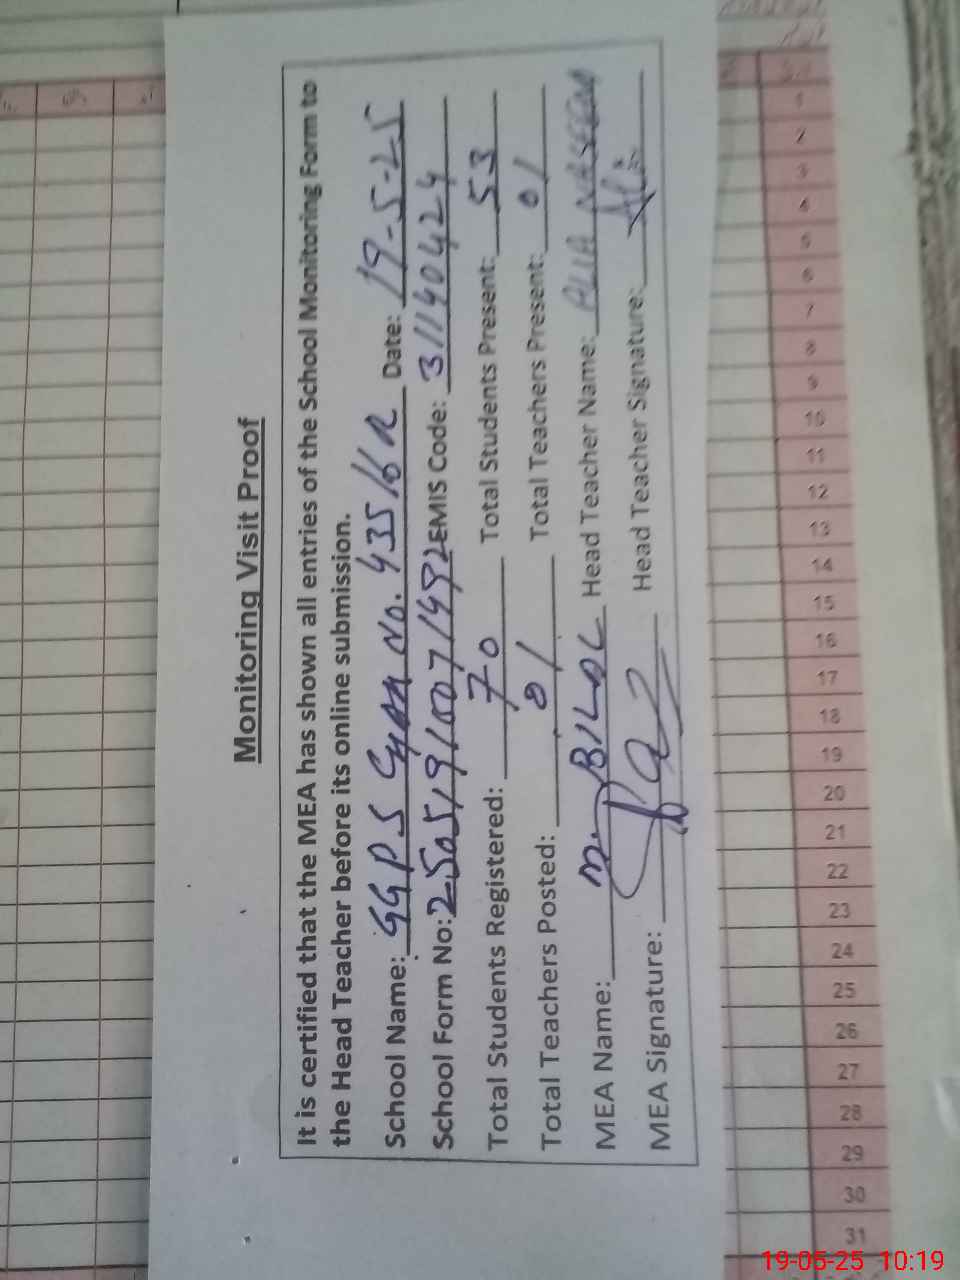 Monitoring Visit Proof
It is certified that the MEA has shown all entries of the School Monitoring Form to
the Head Teacher before its online submission.
School Name: GGPS Chak No. 435/6R Date: 19-5-25
School Form No: 25051910071492 EMIS Code: 31140424
Total Students Registered: 70 Total Students Present: 53
Total Teachers Posted: 01 Total Teachers Present: 01
MEA Name: M. BILAL Head Teacher Name: ALIA NASEEM
MEA Signature: Head Teacher Signature:
1
2
3
4
5
6
7
8
9
10
11
12
13
14
15
16
17
18
19
20
21
22
23
24
25
26
27
28
29
30
31
19-05-25 10:19